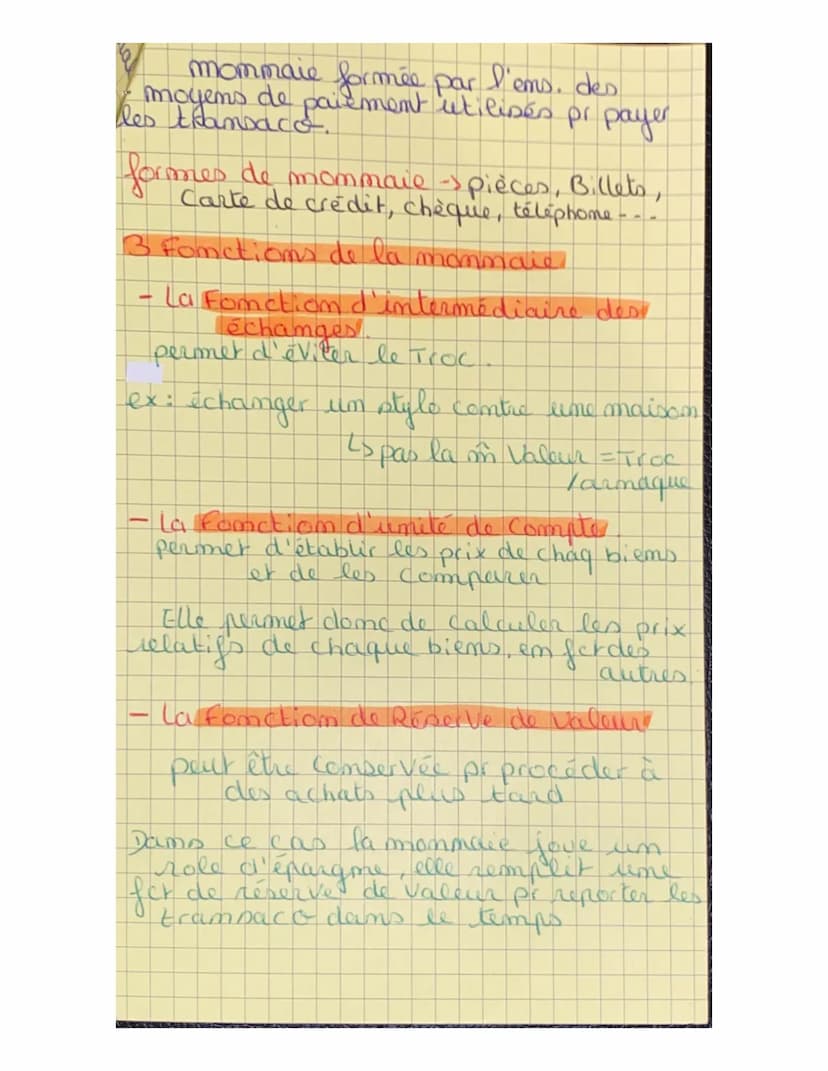 monnaie formée par l'ens. des
moyens de paiement utilisés pr payer
les transac°.
formes de monnaie -> pièces, Billets,
Carte de crédit, chèque, téléphone ---
3 fonctions de la monnaie
- La Fonction d'intermédiaire des
échanges.
permet d'éviter le Troc.
ex : échanger un stylo contre une maison
↳ pas la m̂ Valeur = Troc
/arnaque
- La Fonction d'unité de compte
permet d'établir les prix de chaq biens
et de les comparer
Elle permet donc de calculer les prix
relatifs de chaque biens, en fct des
autres
- La fonction de Réserve de valeur
peut être conservée pr procéder à
des achats plus tard
Dans ce cas la monnaie joue un
role d'épargne, elle remplit une
fct de réserve de valeur pr reporter les
transac° dans le temps